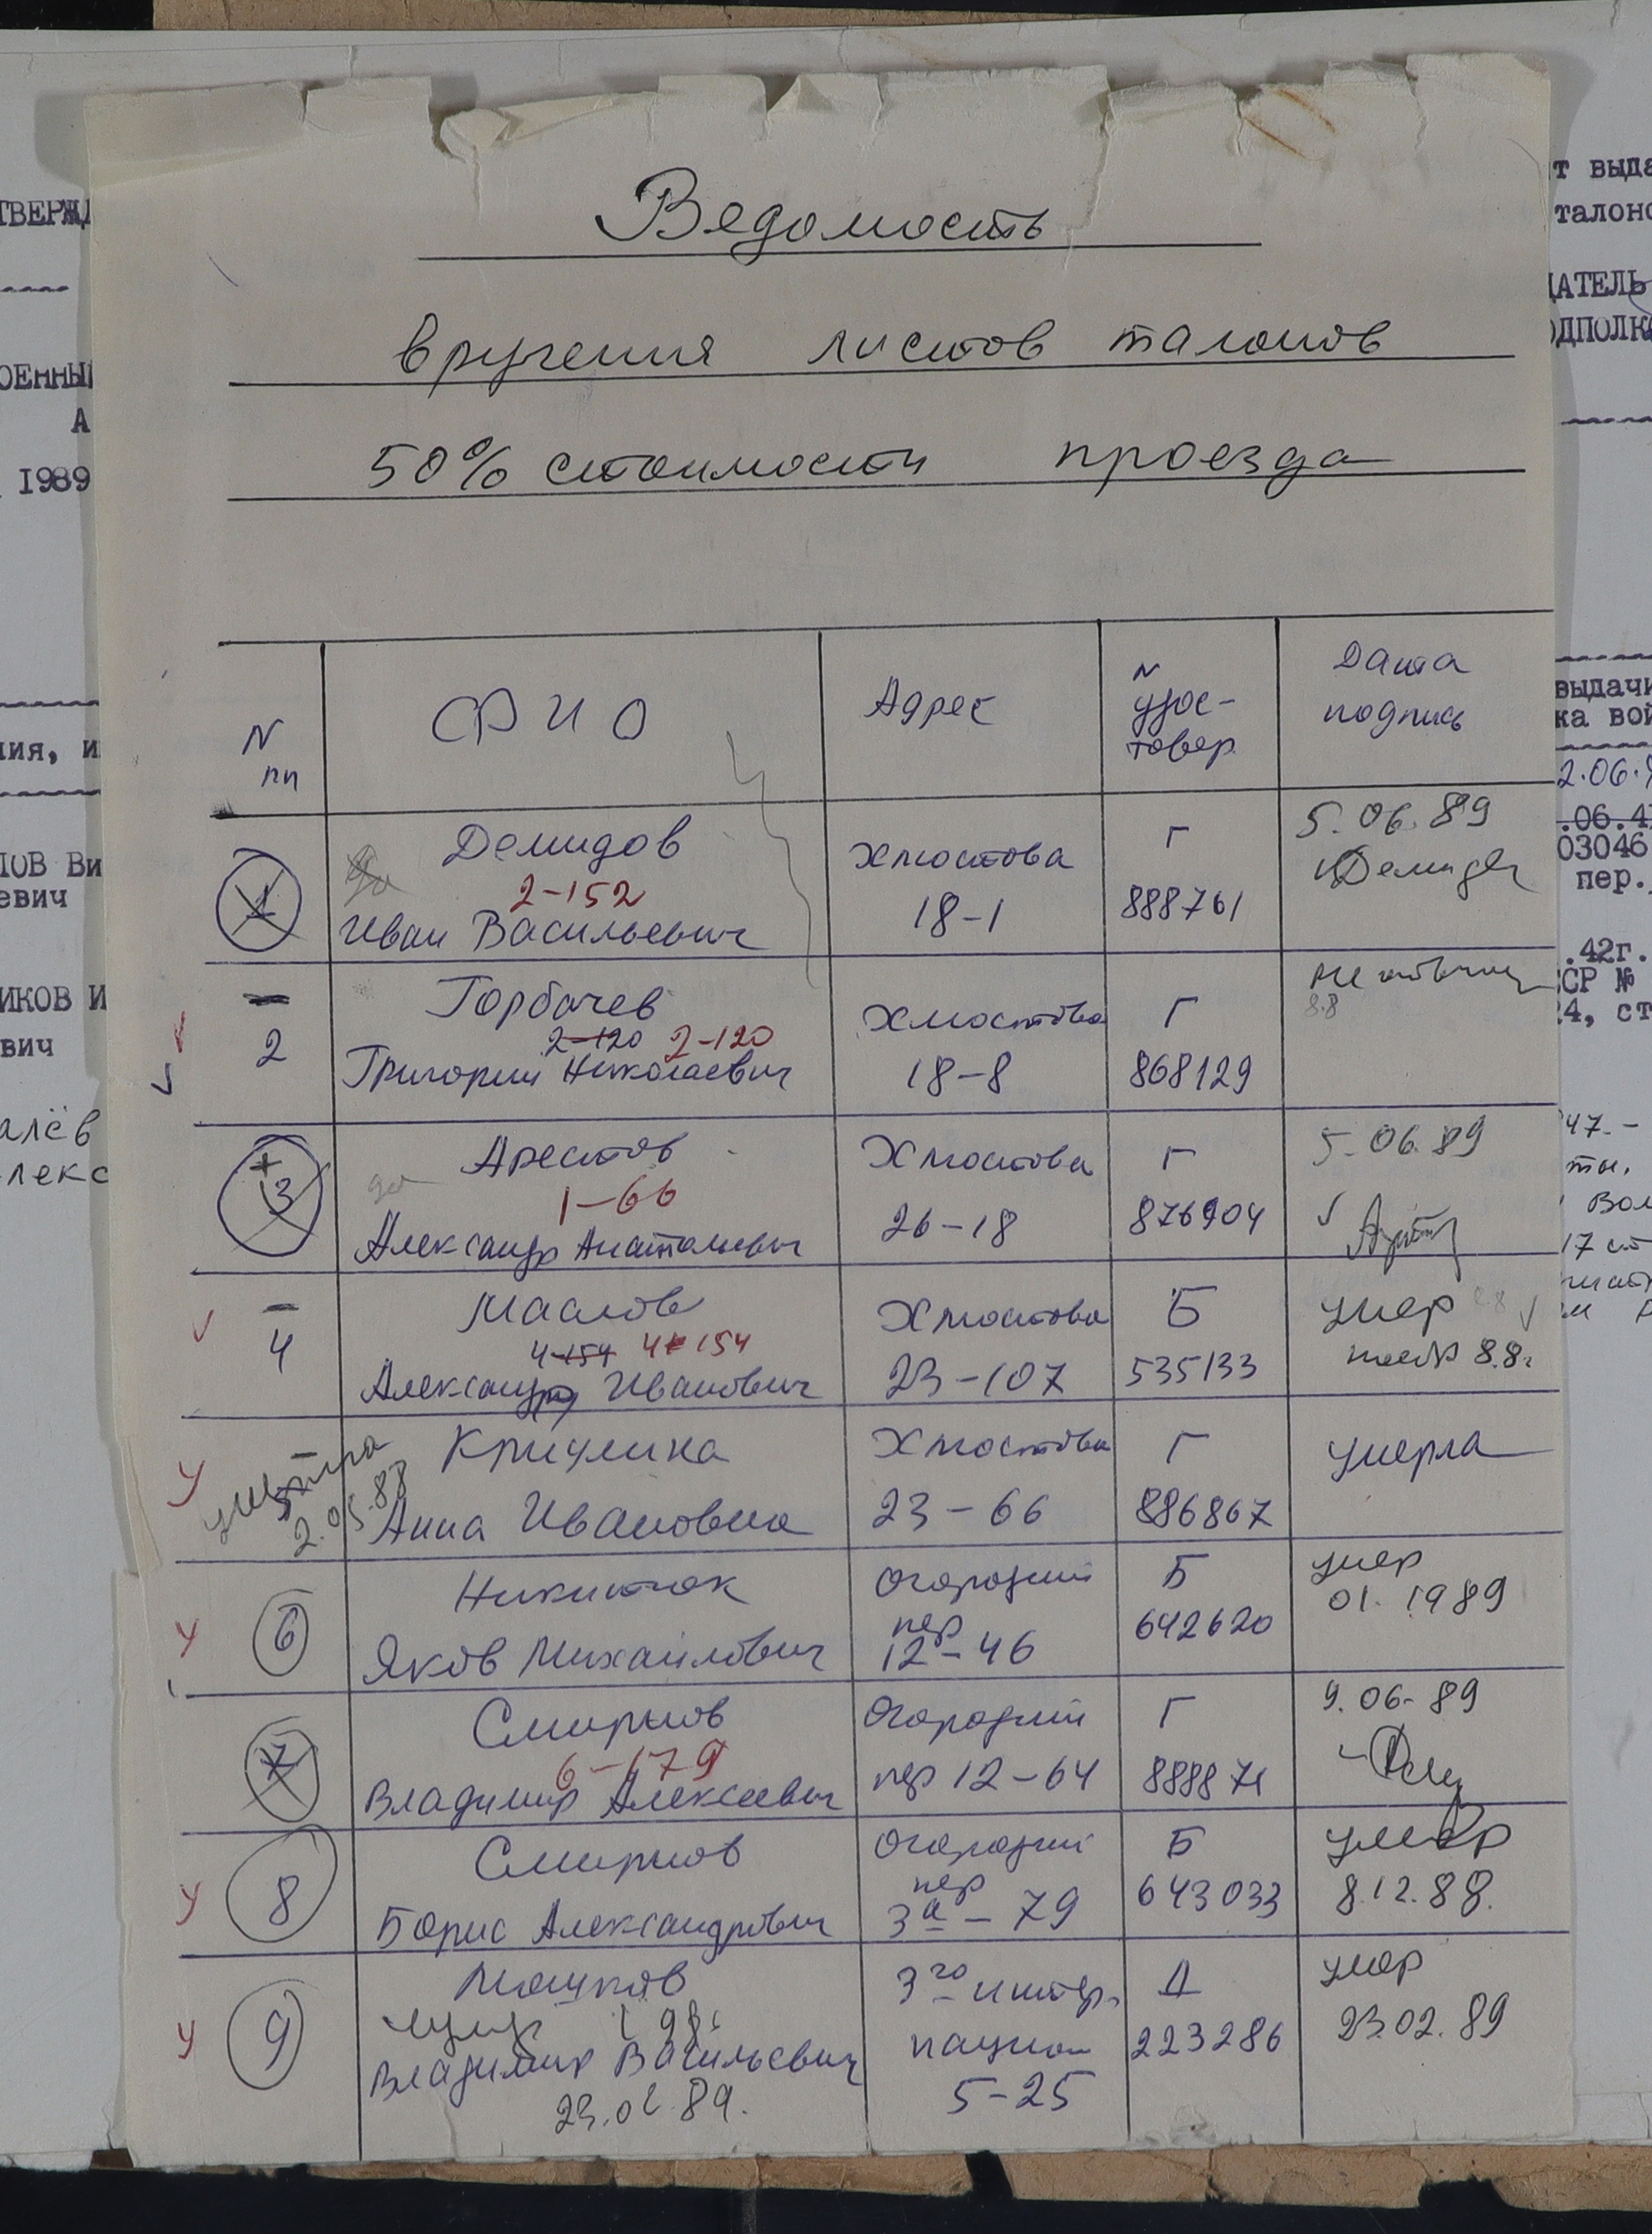 Ведомость
вручения листов талонов
50% стоимости проезда
N пп
ФИО
Адрес
N удос-товер.
Дата подпись
1
Демидов
2-152
Иван Васильевич
Хмостова
18-1
Г
888761
5.06.89
Демидов
2
Горбачев
2-120 2-120
Григорий Николаевич
Хмостова
18-8
Г
868129
8.8
+
3
Арестов
да
1-66
Александр Анатольевич
Хмостова
26-18
Г
876904
5.06.89
4
Маслов
4-154 4-154
Александр Иванович
Хмостова
23-107
Б
535133
умер
8.8
у
умерла
2.05.88
Анна Ивановна
Хмостова
23-66
Г
886867
умерла
у
6
Никитюк
Яков Михайлович
Огородний
пер
12-46
Б
642620
умер
01.1989
7
Смирнов
6-179
Владимир Алексеевич
Огородний
пер 12-64
Г
888871
9.06.89
у
8
Смирнов
Борис Александрович
Огородний
пер
3а-79
Б
643033
умер
8.12.88.
у
9
Владимир Васильевич
3го интер.
национ
5-25
Д
223286
умер
23.02.89
ТВЕРЖД
ОЕННЫ
А
1989
ния, и
ЛОВ Ви
евич
ИКОВ И
вич
алёв
лекс
т выда
талоно
ДАТЕЛЬ
ОДПОЛК
выдачи
ка вой
2.06.
.06.4
03046
пер.
.42г.
ССР №
24, ст
47.-